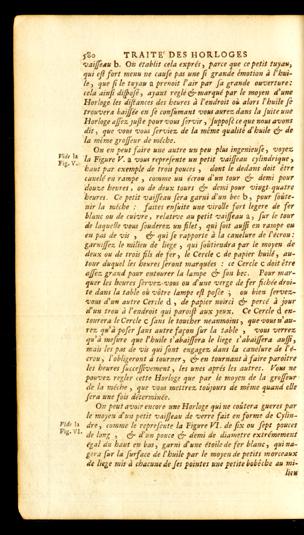 580 TRAITÉ DES HORLOGES
vaisseau b. On établit cela exprés, parce que ce petit tuyau,
qui est fort menu ne cause pas une si grande émotion à l'hui-
le, que si le tuyau a prenoit l'air par sa grande ouverture:
cela ainsi disposé, ayant reglé & marqué par le moyen d'une
Horloge les distances des heures à l'endroit où alors l'huile se
trouvera baissée en se consumant vous aurez dans la suite une
Horloge assez juste pour vous servir, supposé ce que nous avons
dit, que vous vous serviez de la même qualité d'huile & de
la même grosseur de méche.
On en peut faire une autre un peu plus ingenieuse, voyez
Vide la
Fig. V.
la Figure V. a vous represente un petit vaisseau cylindrique,
haut par exemple de trois pouces, dont le dedans doit être
canelé en rampe, comme un écrou d'un tour & demi pour
douze heures, ou de deux tours & demi pour vingt-quatre
heures. Ce petit vaisseau sera garni d'un bec b, pour soûte-
nir la méche: faites ensuite une virolle fort legere de fer
blanc ou de cuivre, relative au petit vaisseau a, sur le tour
de laquelle vous souderez un filet, qui soit aussi en rampe ou
en pas de vis, & qui se rapporte à la canelure de l'écrou:
garnissez le milieu de liege, qui soûtiendra par le moyen de
deux ou de trois fils de fer, le Cercle c de papier huilé, au-
tour duquel les heures seront marquées: ce Cercle c doit être
assez grand pour entourer la lampe & son bec. Pour mar-
quer les heures servez-vous ou d'une verge de fer fichée droi-
te dans la table où vôtre lampe est posée; ou bien servez-
vous d'un autre Cercle d, de papier noirci & percé à jour
d'un trou à l'endroit qui paroît aux yeux. Ce Cercle d en-
tourera le Cercle c sans le toucher neanmoins, que vous n'au-
rez qu'à poser sans autre façon sur la table, vous verrez
qu'à mesure que l'huile s'abaissera le liege s'abaissera aussi,
mais les pas de vis qui sont engagez dans la canelure de l'é-
crou, l'obligeront à tourner, & en tournant à faire paroître
les heures successivement, les unes aprés les autres. Vous ne
pouvez regler cette Horloge que par le moyen de la grosseur
de la méche, que vous mettrez toujours de même quand elle
sera une fois déterminée.
On peut avoir encore une Horloge qui ne coûtera gueres par
le moyen d'un petit vaisseau de verre fait en forme de Cylin-
Vide la
Fig. VI.
dre, comme le represente la Figure VI. de six ou sept pouces
de long, & d'un pouce & demi de diametre extrémement
égal du haut en bas, garni d'une étoile de fer blanc, qui na-
gera sur la surface de l'huile par le moyen de petits morceaux
de liege mis à chacune de ses pointes une petite bobéche au mi-
lieu